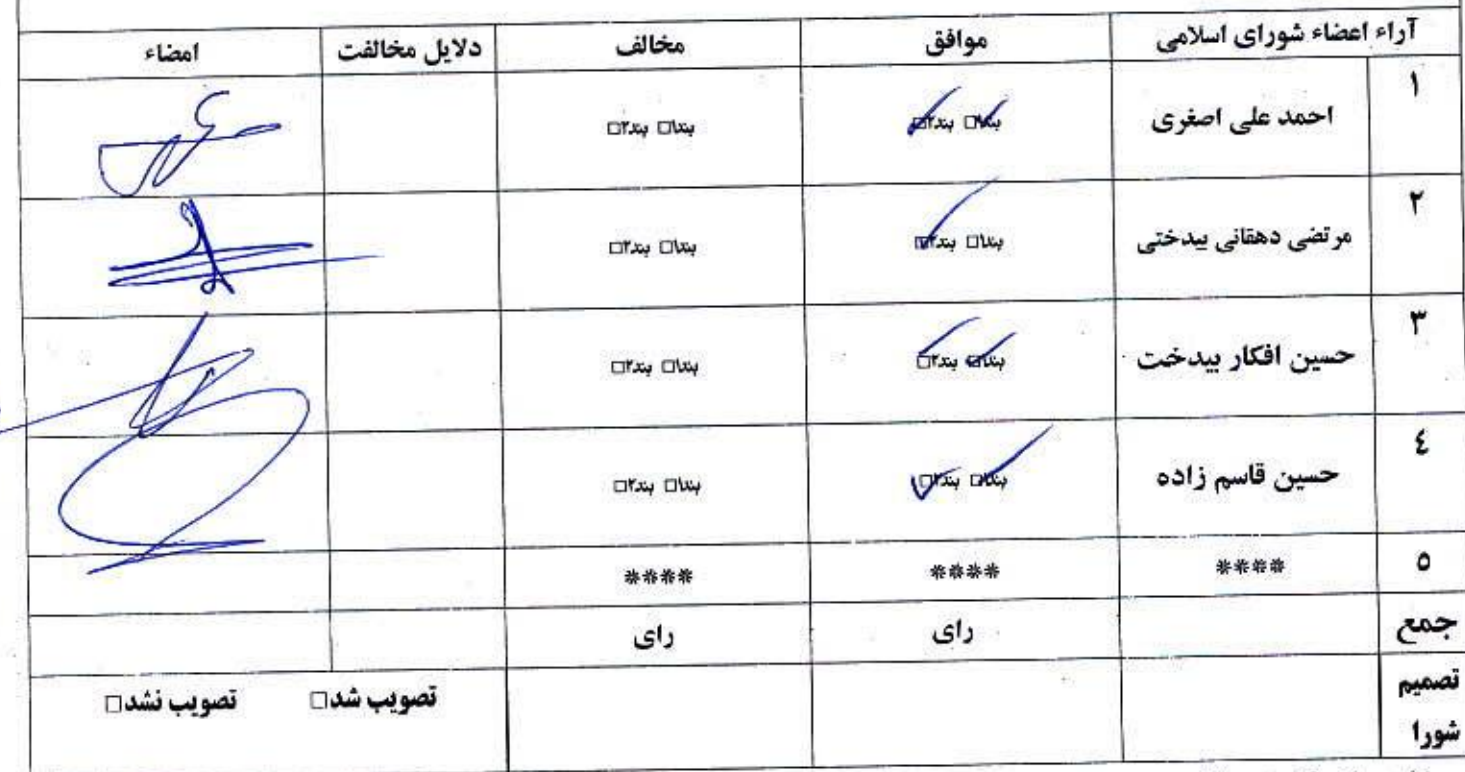 آراء اعضاء شورای اسلامی موافق مخالف دلایل مخالفت امضاء
۱ احمد علی اصغری بند۱□ بند۲□ بند۱□ بند۲□
۲ مرتضی دهقانی بیدختی بند۱□ بند۲□ بند۱□ بند۲□
۳ حسین افکار بیدخت بند۱□ بند۲□ بند۱□ بند۲□
٤ حسین قاسم زاده بند۱□ بند۲□ بند۱□ بند۲□
٥ **** **** ****
جمع رای رای
تصمیم شورا تصویب شد□ تصویب نشد□